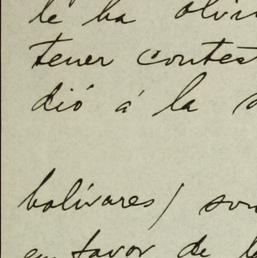 le ha olvi
tener contes
dió á la
bolívares) son
en favor de l